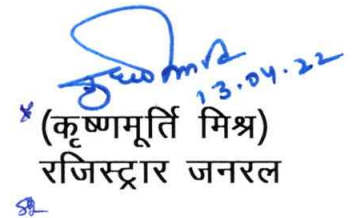 13.04.22
(कृष्णमूर्ति मिश्र)
रजिस्ट्रार जनरल